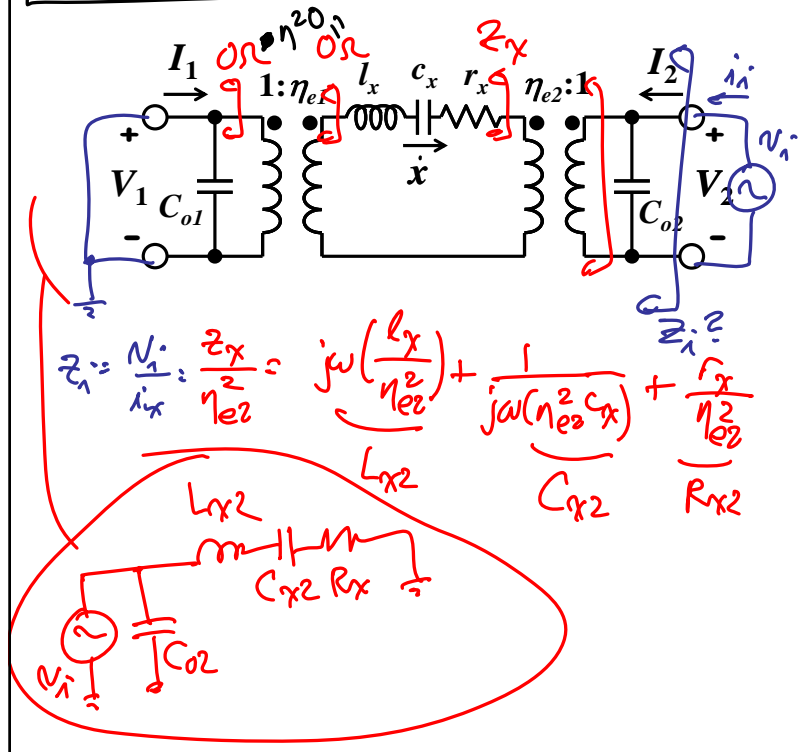 0Ω η²0 = 0Ω
Z_x
I₁ 1:η_e1 l_x c_x r_x η_e2:1 I₂ i_i
+ ẋ + v_i
V₁ C_o1 C_o2 V₂
- -
Z_i?
Z_i = v_i/i_x = Z_x/η²_e2 = jω(l_x/η²_e2) + 1/jω(η²_e2 C_x) + r_x/η²_e2
L_x2 C_x2 R_x2
L_x2
C_x2 R_x
C_o2
v_i